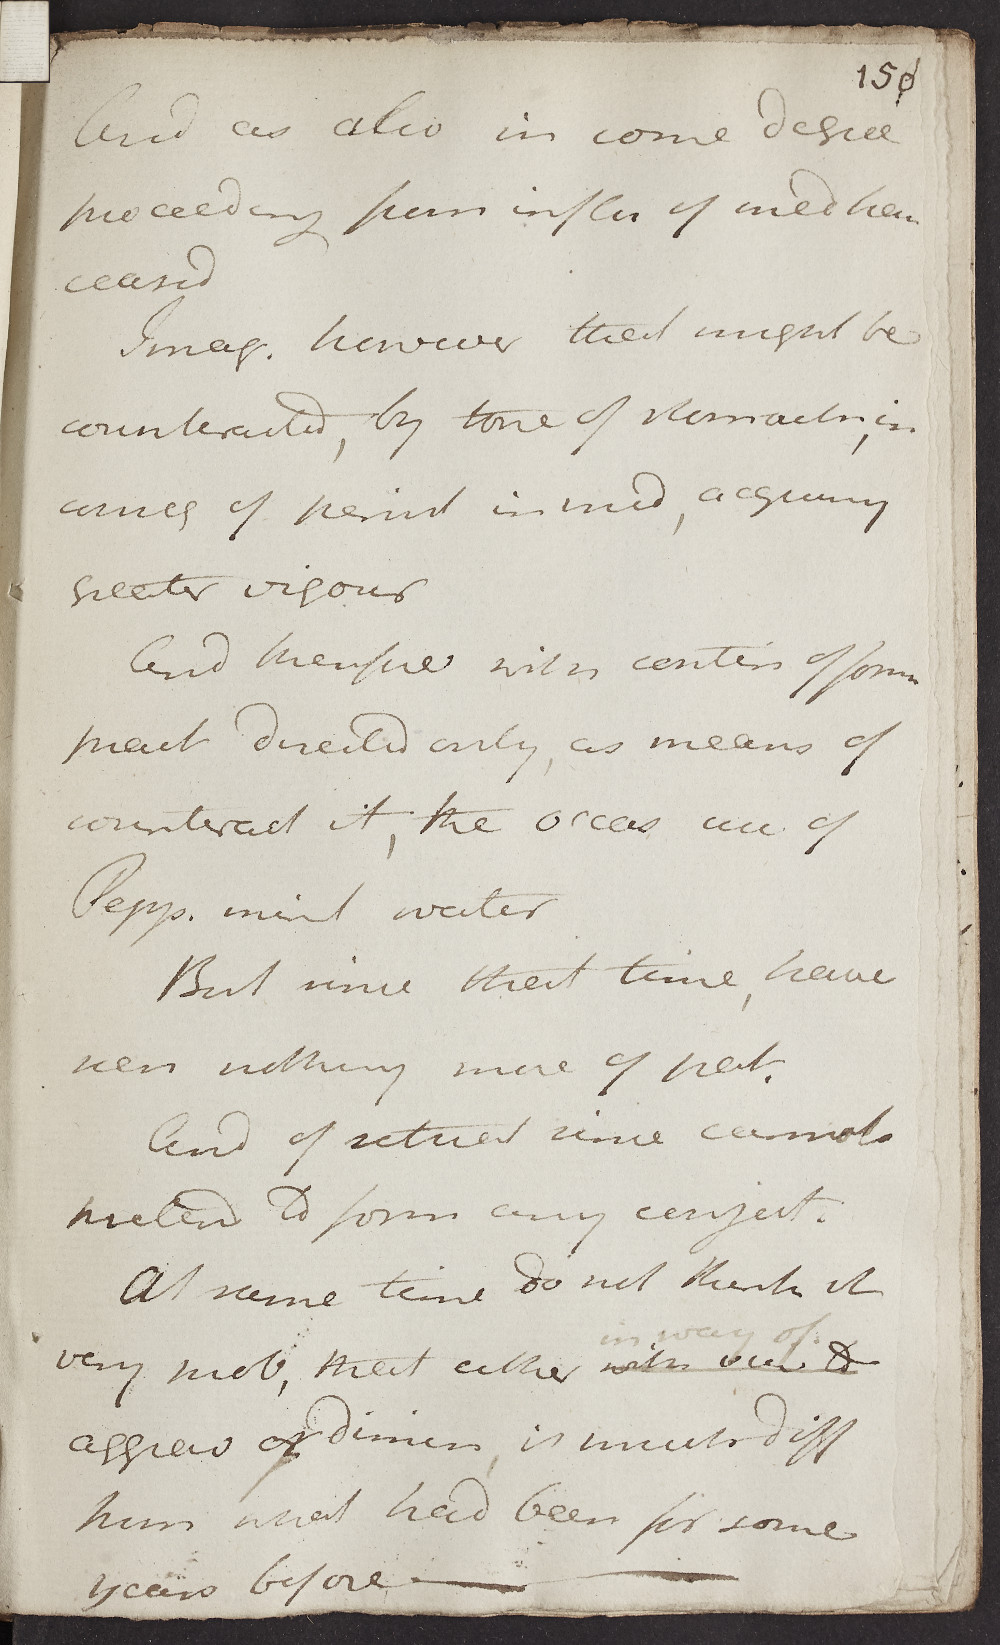 150
And as also in some degree
proceeding from influ of med hav
ceased
Imag. however that might be
counteracted, by tone of stomach, in
conseq of period in med, acquiring
greater vigour
And therefore with contin of form
pract directed only, as means of
counteract it, the occas use of
Pepp. mint water
But since that time, have
seen nothing more of pat.
And of actual since cannot
pretend to form any conject.
At same time do not think it
very prob, that either
in way of
aggrav or dimin, is much diff
from what had been for some
years before